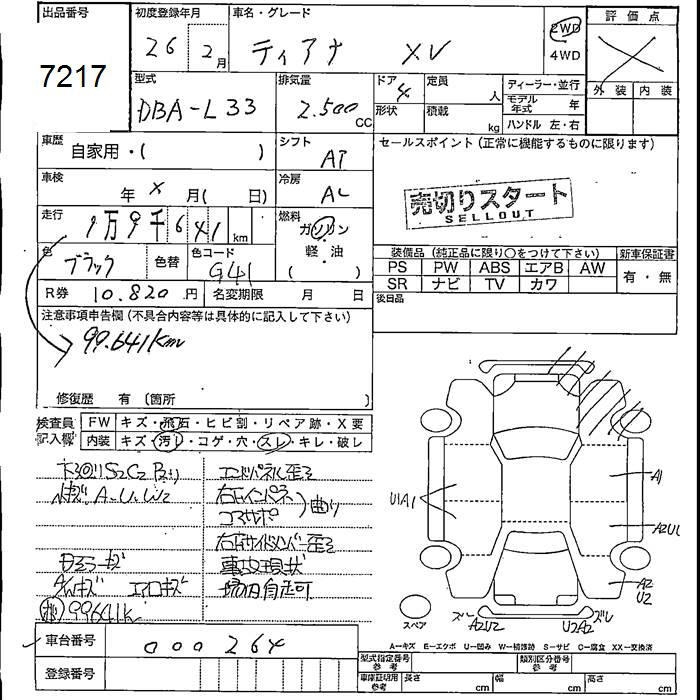 出品番号
7217
初度登録年月
26 2月
車名・グレード
ティアナ XV
2WD
4WD
評価点
外装 内装
型式
DBA-L33
排気量
2.500 CC
ドア 4
形状
定員 人
積載 kg
ディーラー・並行
モデル年式 年
ハンドル 左・右
車歴
自家用・( )
シフト
AT
セールスポイント (正常に機能するものに限ります)
売切りスタート
SELLOUT
車検
年 × 月( 日)
冷房
AC
走行
9万9千641km
燃料
ガソリン
軽・油
( )
色
ブラック
色替
色コード
G41
装備品 (純正品に限り○をつけて下さい)
PS PW ABS エアB AW
SR ナビ TV カワ
新車保証書
有・無
後日品
R券 10.820円
名変期限 月 日
注意事項申告欄 (不具合内容等は具体的に記入して下さい)
99.641km
修復歴 有 (箇所 )
検査員記入欄
FW キズ・飛石・ヒビ割・リペア跡・X要
内装 キズ・汚れ・コゲ・穴・スレ・キレ・破レ
下回りS2C2
エンドパネル歪ミ
小キズ A-U. W2
右リヤインパネ
コアサポ
曲り
右サイドメンバー歪ミ
ミラーキズ
事故現状
AWキズ エアロキズ
場内自走可
99641k
A1
U1A1
A2
U2
スペア
ズレ
A2U2
U2A2
ズレ
A-キズ E-エクボ U-凹み W-補修跡 S-サビ C-腐食 XX-交換済
車台番号
000264
登録番号
型式指定番号 参考
類別区分番号 参考
車庫証明用 参考
長さ cm
幅 cm
高さ cm